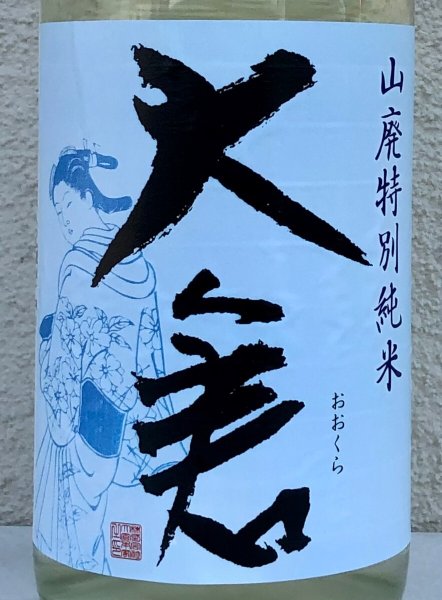 山廃特別純米
大倉
おおくら